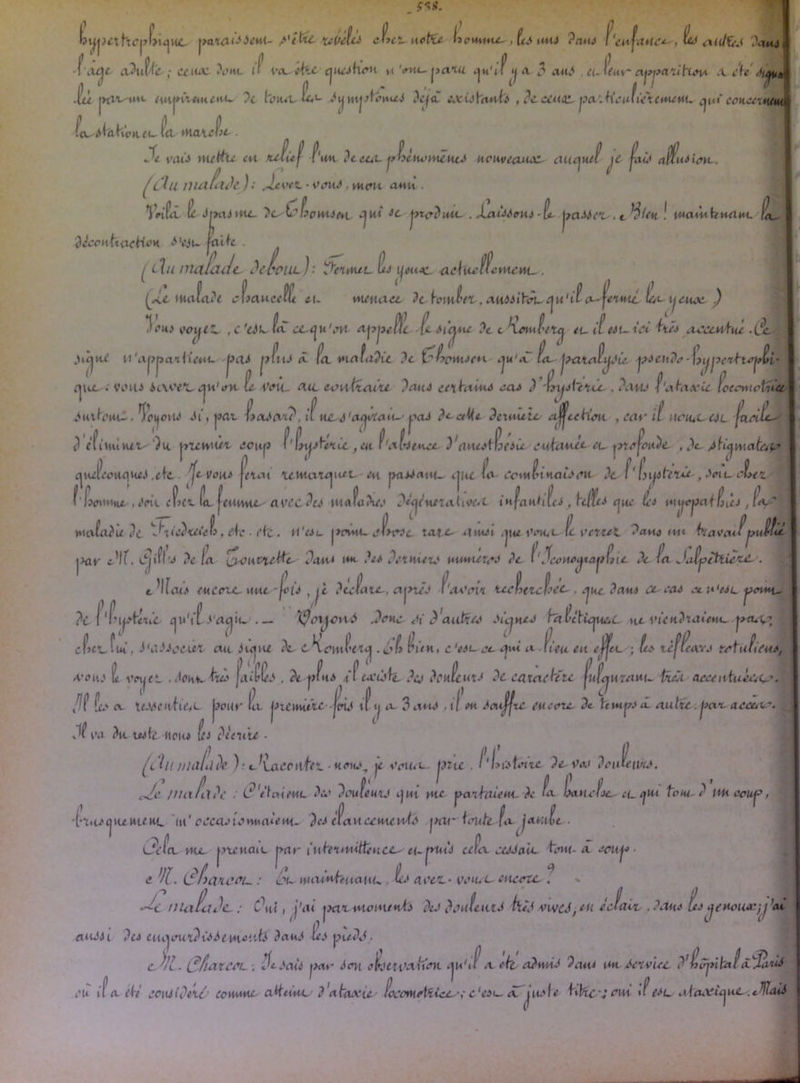 558.
hypertrophique paraissent s'être révélés chez notre homme, les uns dans l'enfance, les autres dans
l'âge adulte ; ceux dont il va être question n'ont paru qu'il y a 3 ans et leur apparition a été
par un empirement de tous les symptômes déjà existants, de ceux particulièrement qui concernent
la station et la marche.
Je vais mettre en relief l'un de ces phénomènes nouveaux auquel je fais allusion.
(Au malade) : Levez-vous, mon ami.
Voilà le spasme de Thomsen qui se produit. Laissons-le passer. Bien ! maintenant la
décontraction s'est faite.
(Au malade debout) : Fermez les yeux actuellement.
(Le malade chancelle et menace de tomber, aussitôt qu'il a fermé les yeux)
Vous voyez, c'est là ce qu'on appelle le signe de Romberg et il est ici très accentué. Ce
signe n'appartient pas plus à la maladie de Thomsen qu'à la paralysie pseudo-hypertrophi-
que ; vous savez qu'on le voit au contraire dans certains cas d'hystérie, dans l'ataxie locomotrice
surtout. Voyons si, par hasard, il ne s'agirait pas de cette dernière affection, car il nous est facile
d'éliminer du premier coup l'hystérie, en l'absence d'anesthésie cutanée et profonde, de stigmates
quelconques, etc. Je vous ferai remarquer en passant que la combinaison de l'hystérie, soit chez
l'homme, soit chez la femme avec des maladies dégénératives infantiles, telles que les myopathies, la
maladie de Friedreich, etc. etc. n'est point chose rare ainsi que vous le verrez dans un travail publié
par M. Gilles de la Tourette dans un des derniers numéros de l'Iconographie de la Salpêtrière.
Mais encore une fois, je déclare, après l'avoir recherchée, que dans ce cas ce n'est point
de l'hystérie qu'il s'agit. — Voyons donc si d'autres signes tabétiques ne viendraient pas,
chez lui, s'associer au signe de Romberg. Eh bien, c'est ce qui a lieu en effet ; les réflexes rotuliens,
vous le voyez, sont très faibles. De plus il existe des douleurs de caractère fulgurant très accentuées.
Il les a ressenties pour la première fois il y a 3 ans, il en souffre encore de temps à autre par accès.
Il va du reste nous les décrire.
(Au malade) : Racontez-nous, je vous prie, l'histoire de vos douleurs.
Le malade : C'étaient des douleurs qui me partaient de la hanche et qui tout d'un coup,
brusquement m'occasionnaient des élancements par toute la jambe.
Cela me prenait par intermittence et puis cela cessait tout à coup.
M. Charcot : Et maintenant, les avez-vous encore ?
Le malade : Oui, j'ai par moments des douleurs très vives, en éclair, dans les genoux ; j'ai
aussi des engourdissements dans les pieds.
M. Charcot : Je sais par son observation qu'il a été admis dans un service d'hôpital à Paris
où il a été considéré comme atteint d'ataxie locomotrice ; c'est à juste titre ; oui il est ataxique. Mais